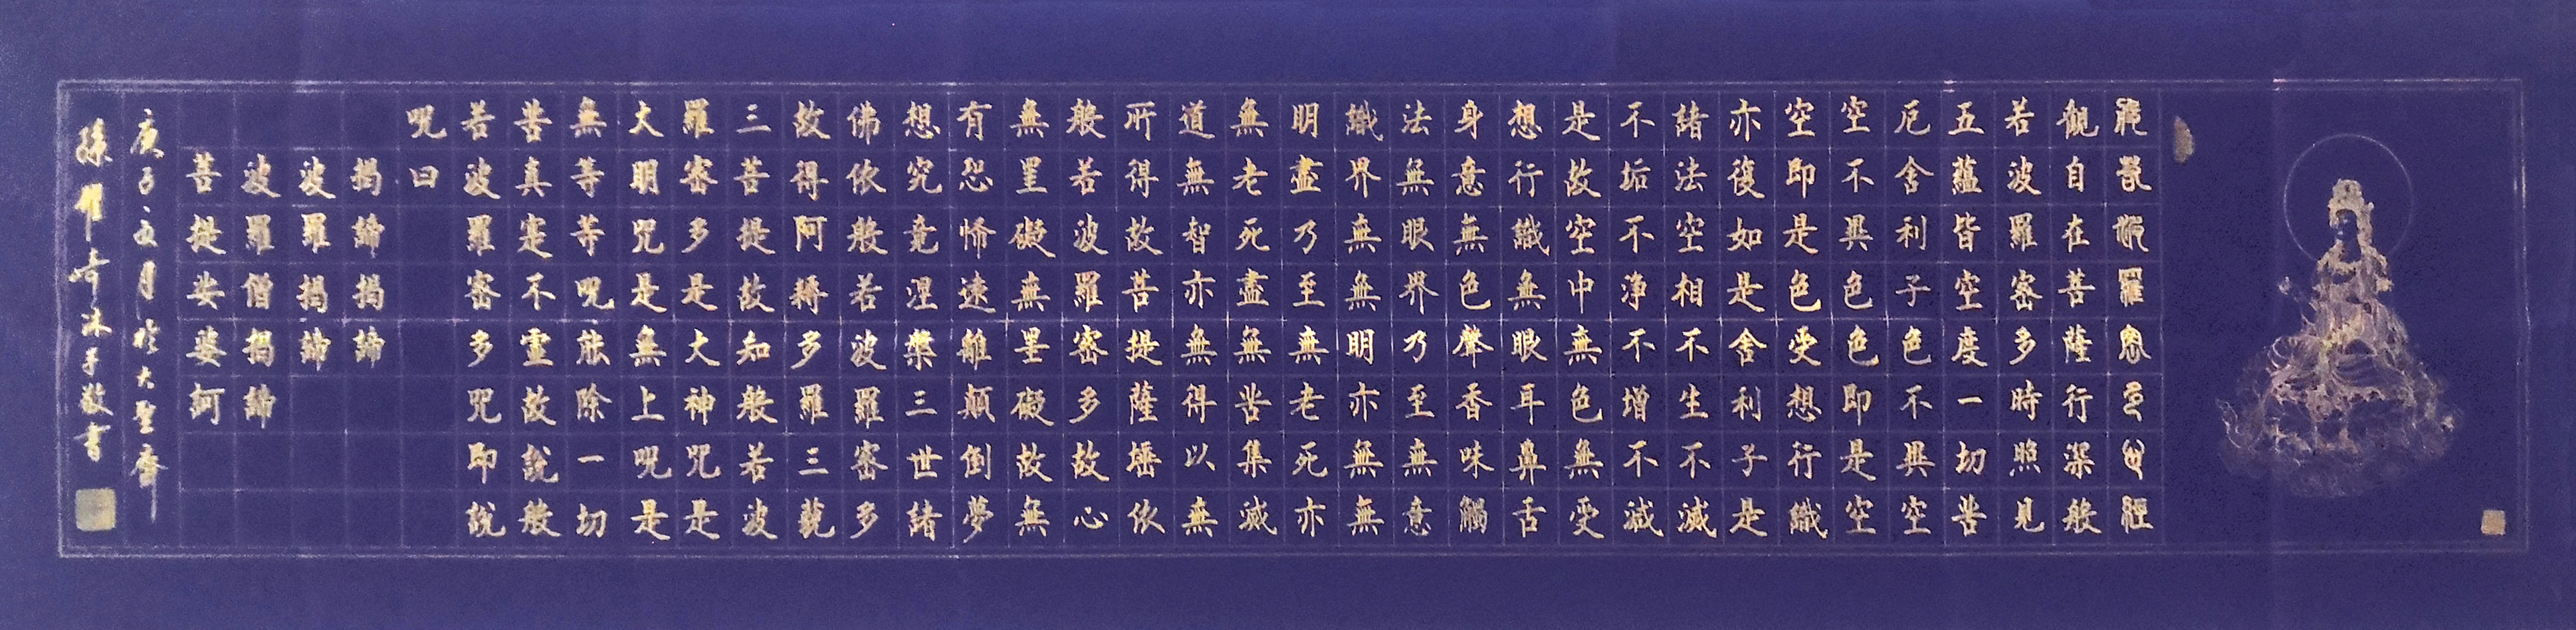 般若波羅蜜多心經
觀自在菩薩行深般
若波羅密多時照見
五蘊皆空度一切苦
厄舍利子色不異空
空不異色色即是空
空即是色受想行識
亦復如是舍利子是
諸法空相不生不滅
不垢不淨不增不減
是故空中無色無受
想行識無眼耳鼻舌
身意無色聲香味觸
法無眼界乃至無意
識界無無明亦無無
明盡乃至無老死亦
無老死盡無苦集滅
道無智亦無得以無
所得故菩提薩埵依
般若波羅密多故心
無罣礙無罣礙故無
有恐怖遠離顛倒夢
想究竟涅槃三世諸
佛依般若波羅密多
故得阿耨多羅三藐
三菩提故知般若波
羅密多是大神咒是
大明咒是無上咒是
無等等咒能除一切
苦真寔不虛故說般
若波羅密多咒即說
咒曰
揭諦揭諦
波羅揭諦
波羅僧揭諦
菩提娑婆訶
庚子月於大聖齋
孫耀奇沐手敬書